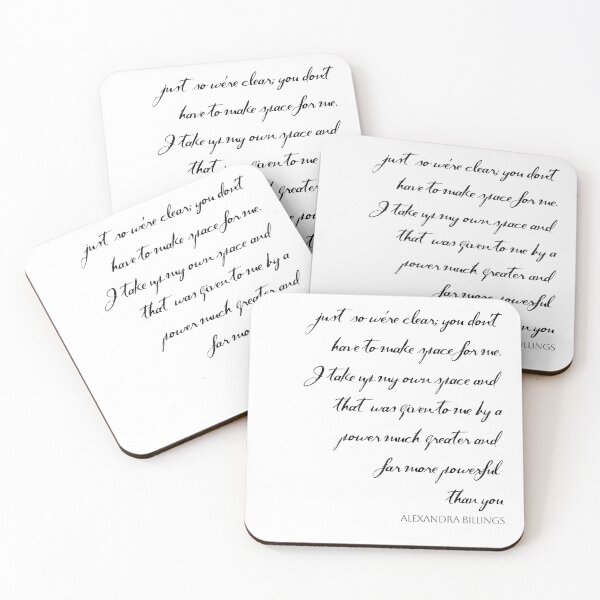 just so we're clear; you don't
have to make space for me.
I take up my own space and
that was given to me
greater
just so we're clear; you don't
have to make space for me.
I take up my own space and
that was given to me by a
power much greater and
far more powerful
you
just so we're clear; you don't
have to make space for me.
I take up my own space and
that was given to me by a
power much greater and
far more
just so we're clear; you don't
have to make space for me.
I take up my own space and
that was given to me by a
power much greater and
far more powerful
than you
ALEXANDRA BILLINGS